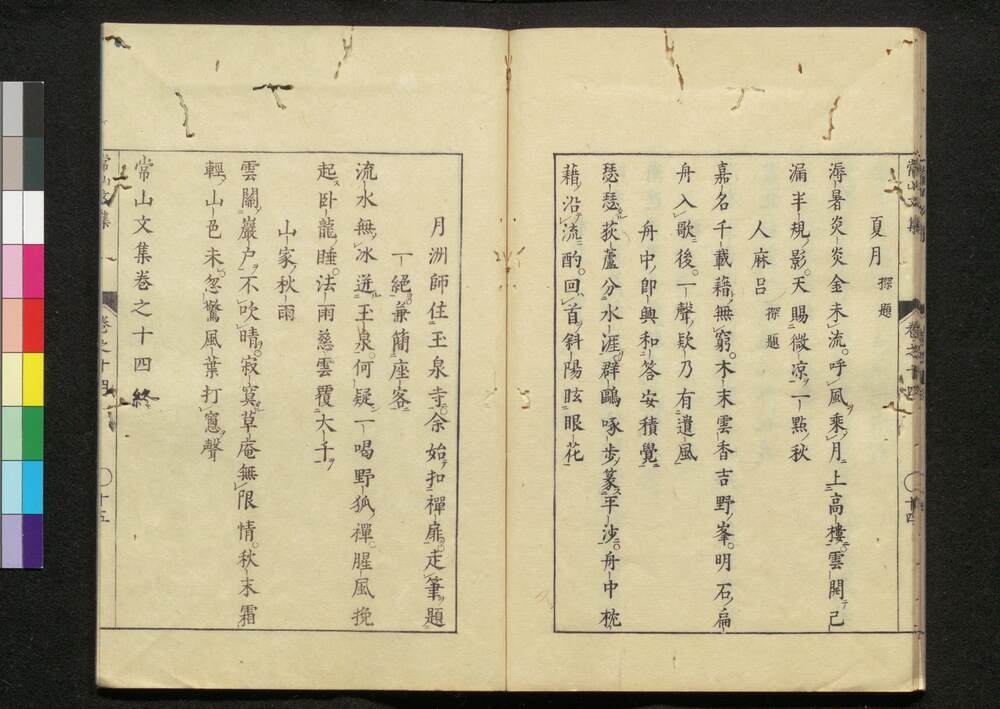 夏月 探題
溽暑炎炎金未流。呼風乘月上高樓。雲閑已
漏半規影。天賜微凉一點秋
人麻呂 探題
嘉名千載藉無窮。木末雲香吉野峯。明石扁
舟入歌後。一聲欸乃有遺風
舟中卽興和答安積覺
瑟瑟荻蘆分水涯。群鷗啄步篆平沙。舟中枕
藉沿流酌。回首斜陽眩眼花
常山文集
卷之十四
十四
月洲師住玉泉寺。余始扣禪扉。走筆題
一絕兼簡座客
流水無冰迸玉泉。何疑一喝野狐禪。腥風挽
起卧龍睡。法雨慈雲覆大千
山家秋雨
雲關巖户不吹晴。寂寞草庵無限情。秋末霜
輕山色未。忽驚風葉打窻聲
常山文集卷之十四 終
常山文集
卷之十四
十五